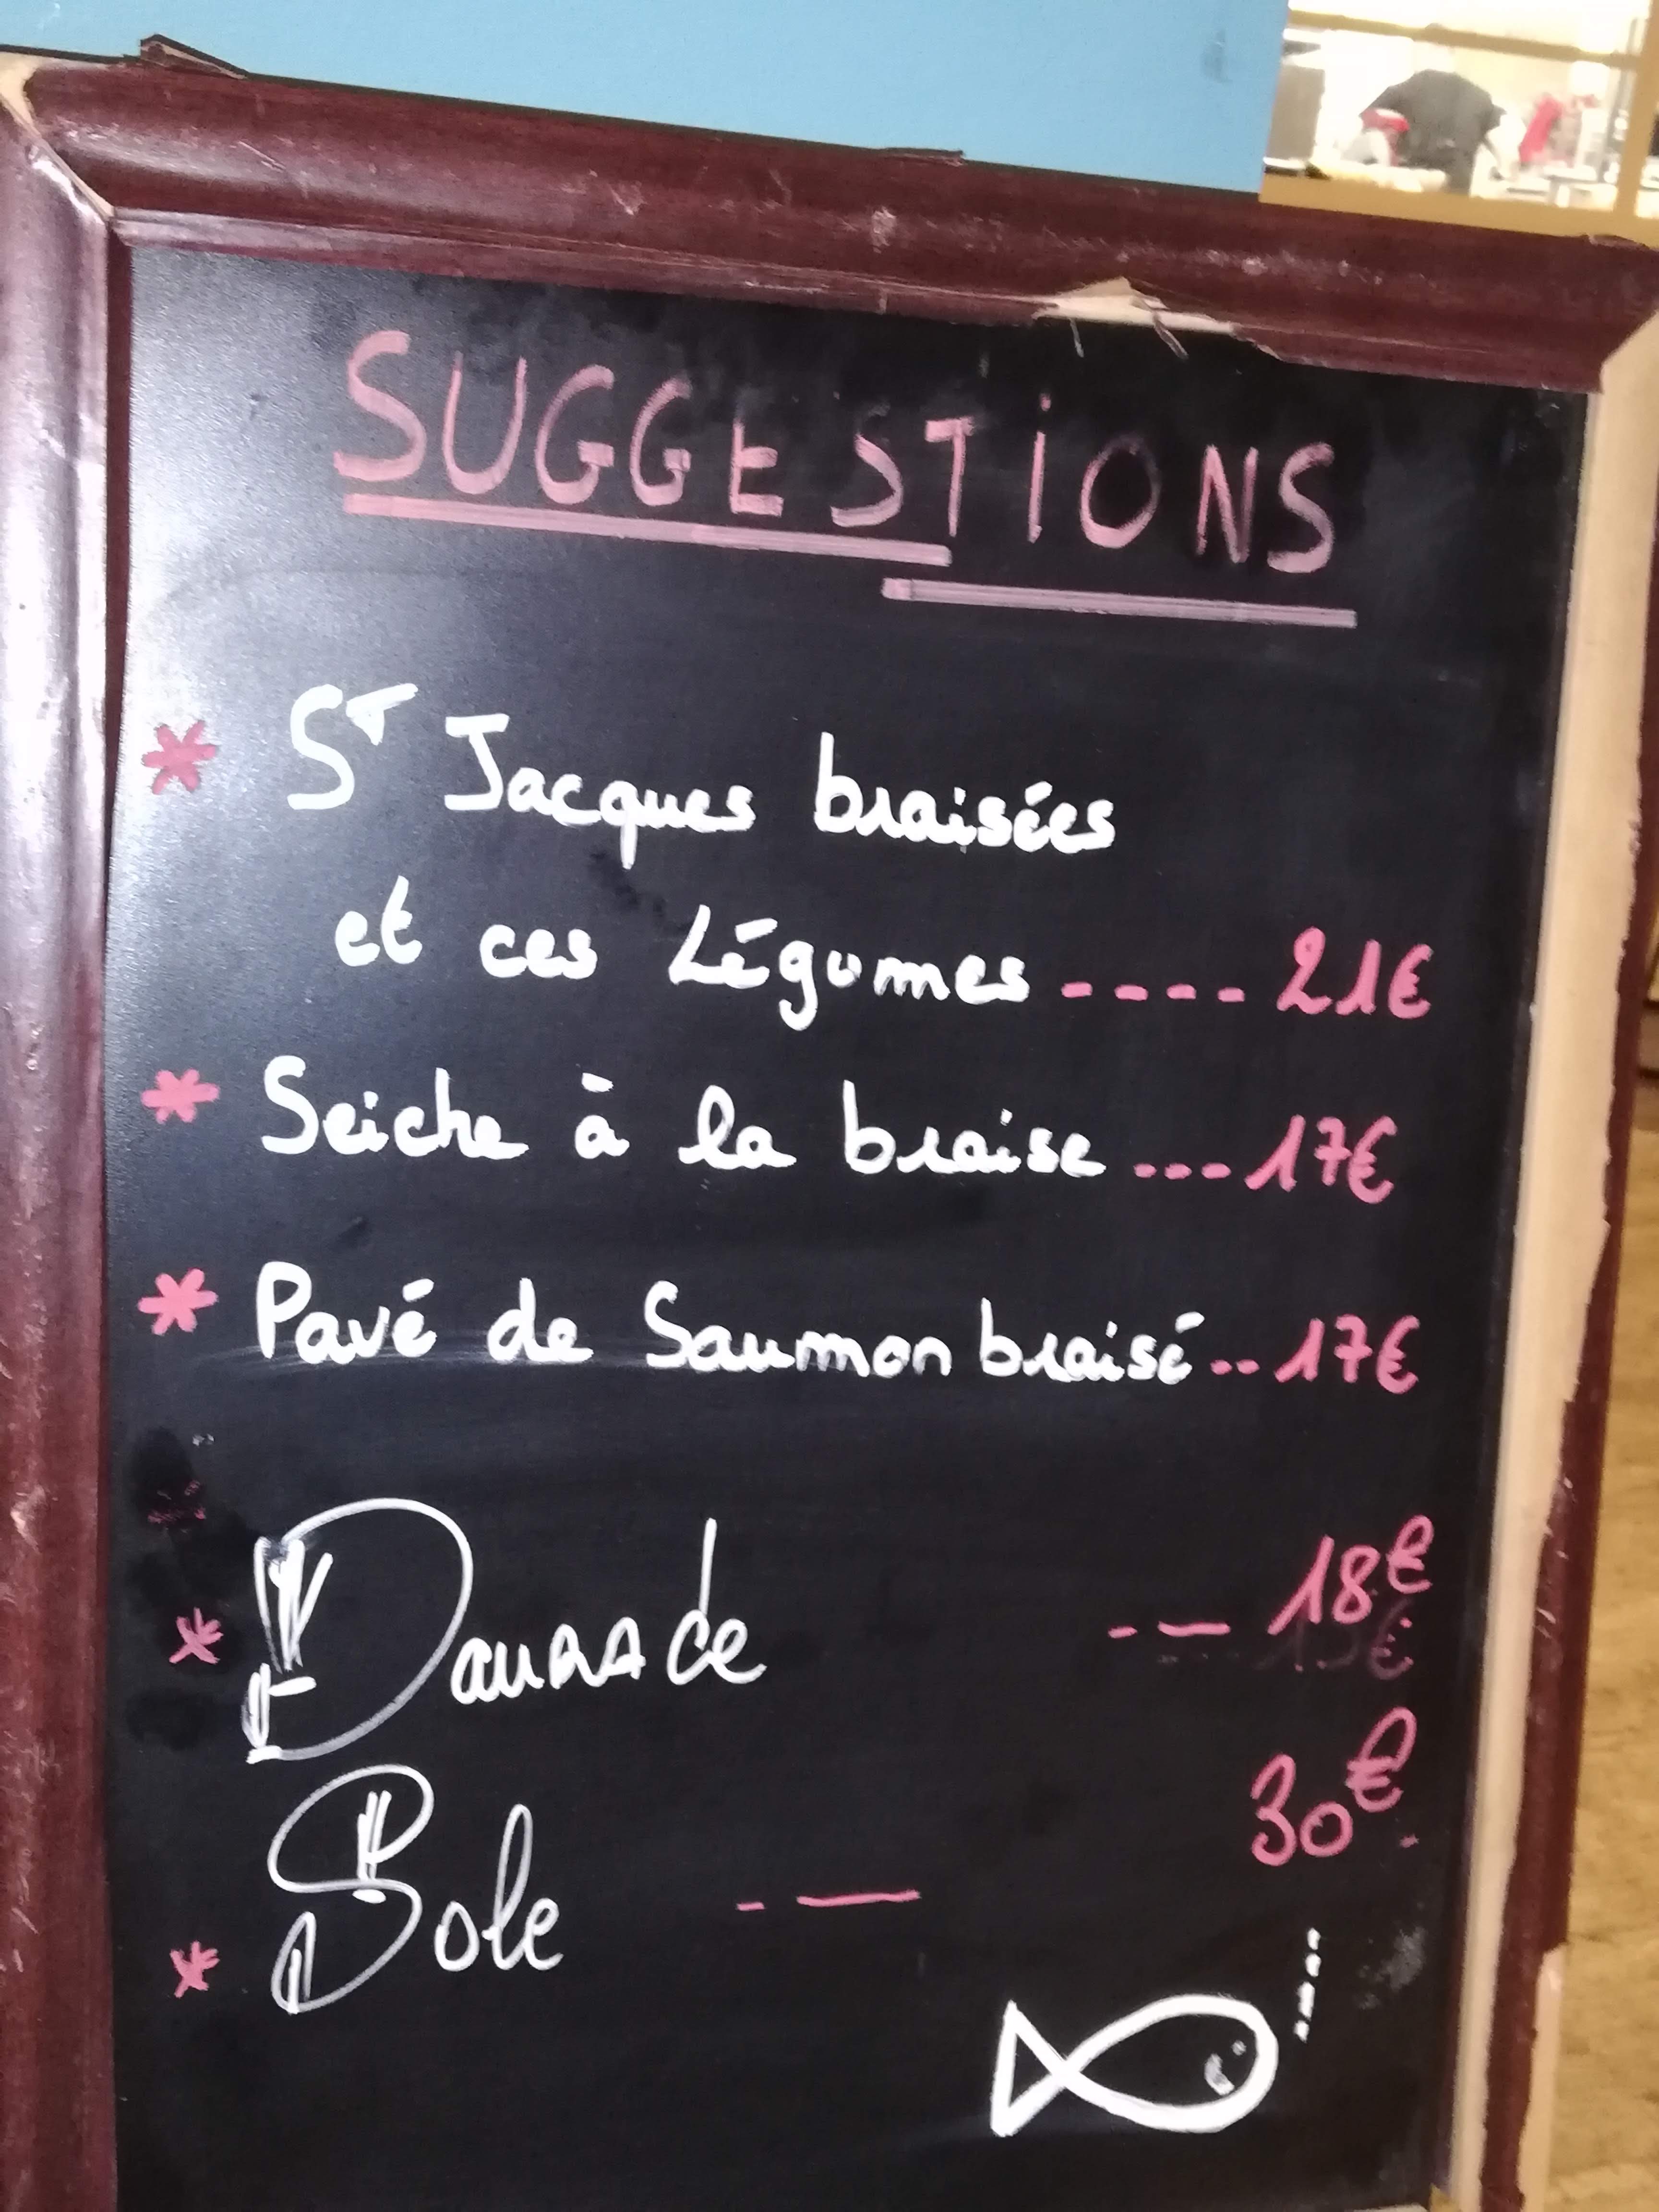 SUGGESTiONS
* ST Jacques braisées
et ces Légumes ---- 21€
* Seiche à la braise --- 17€
* Pavé de Saumon braisé -- 17€
* Daurade -- 18€
* Sole -- 30€